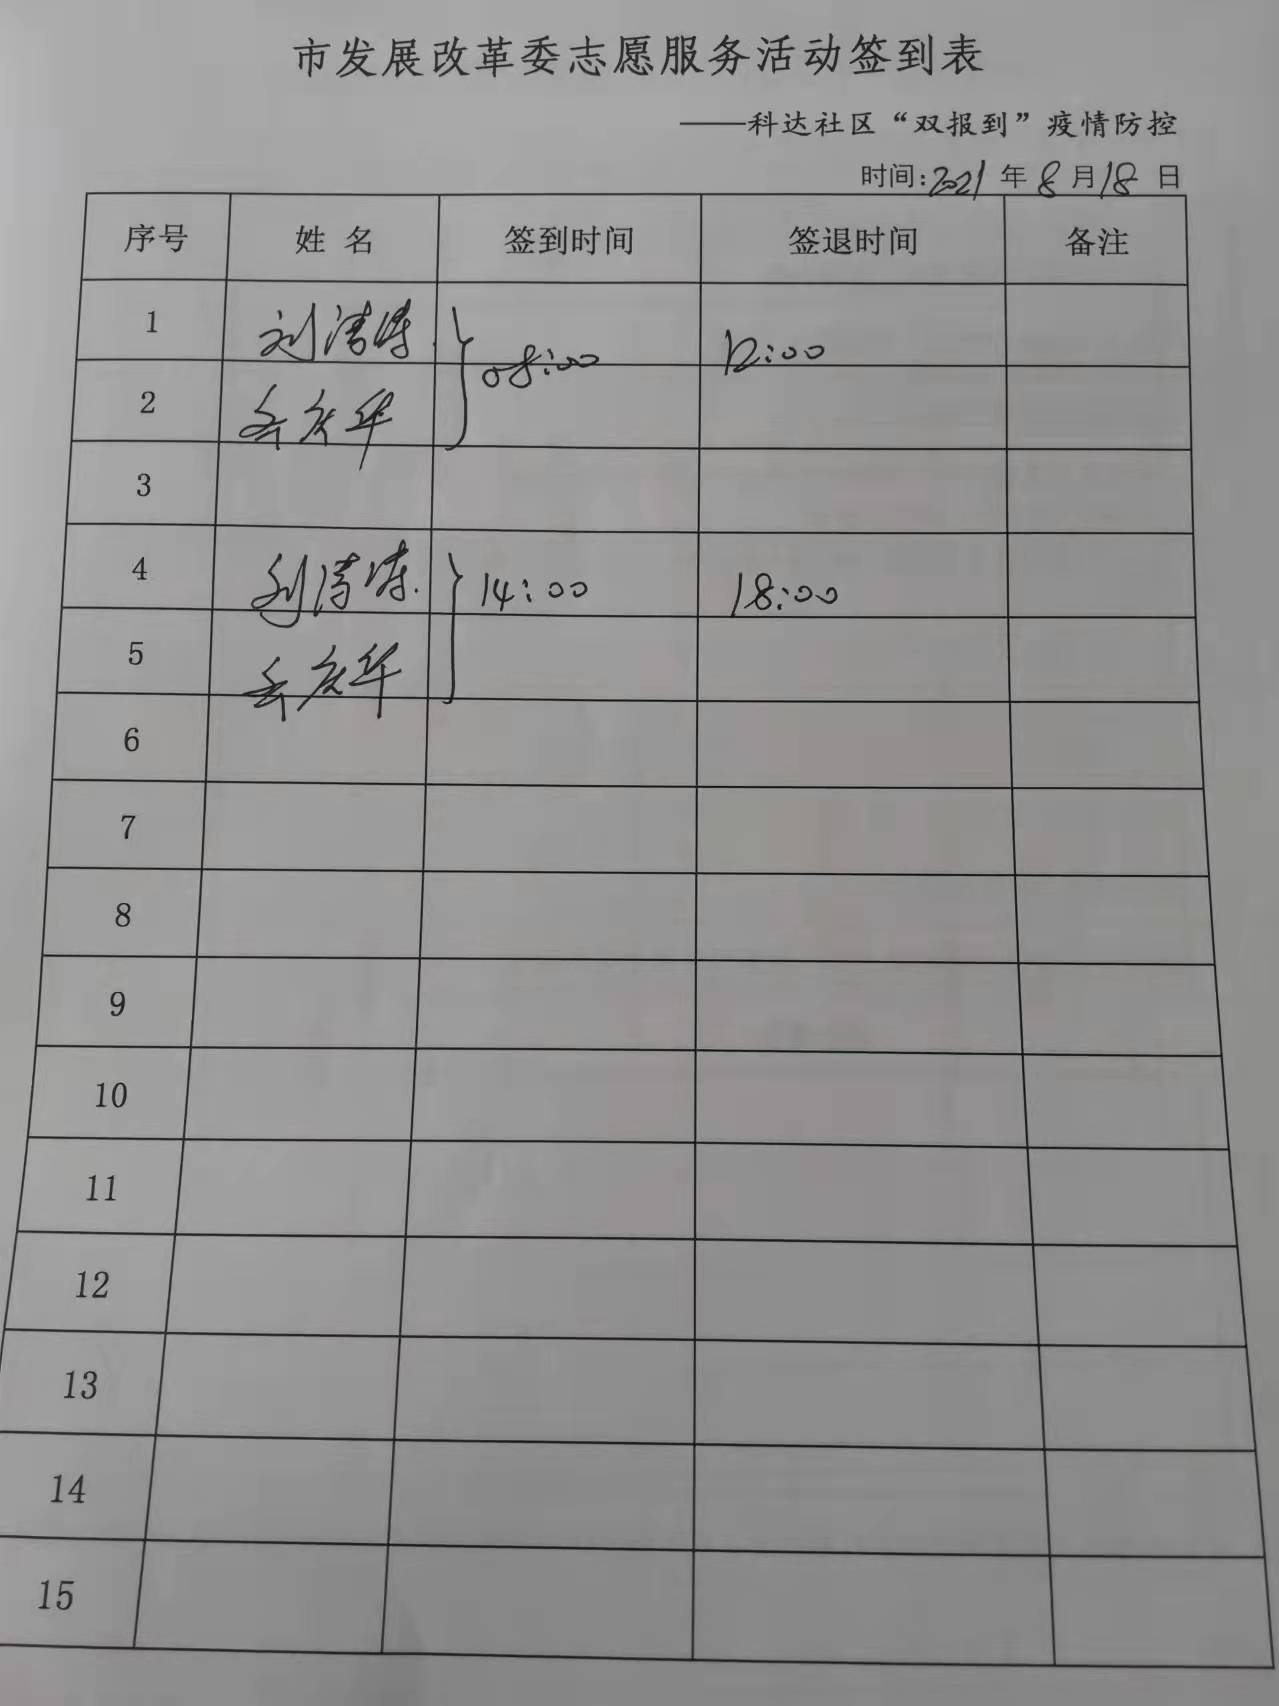 市发展改革委志愿服务活动签到表
——科达社区“双报到”疫情防控
时间:2021 年 8 月 18 日
序号 姓 名 签到时间 签退时间 备注
1 刘清涛 08:00 12:00
2 庆华
3
4 刘清涛 14:00 18:00
5 庆华
6
7
8
9
10
11
12
13
14
15